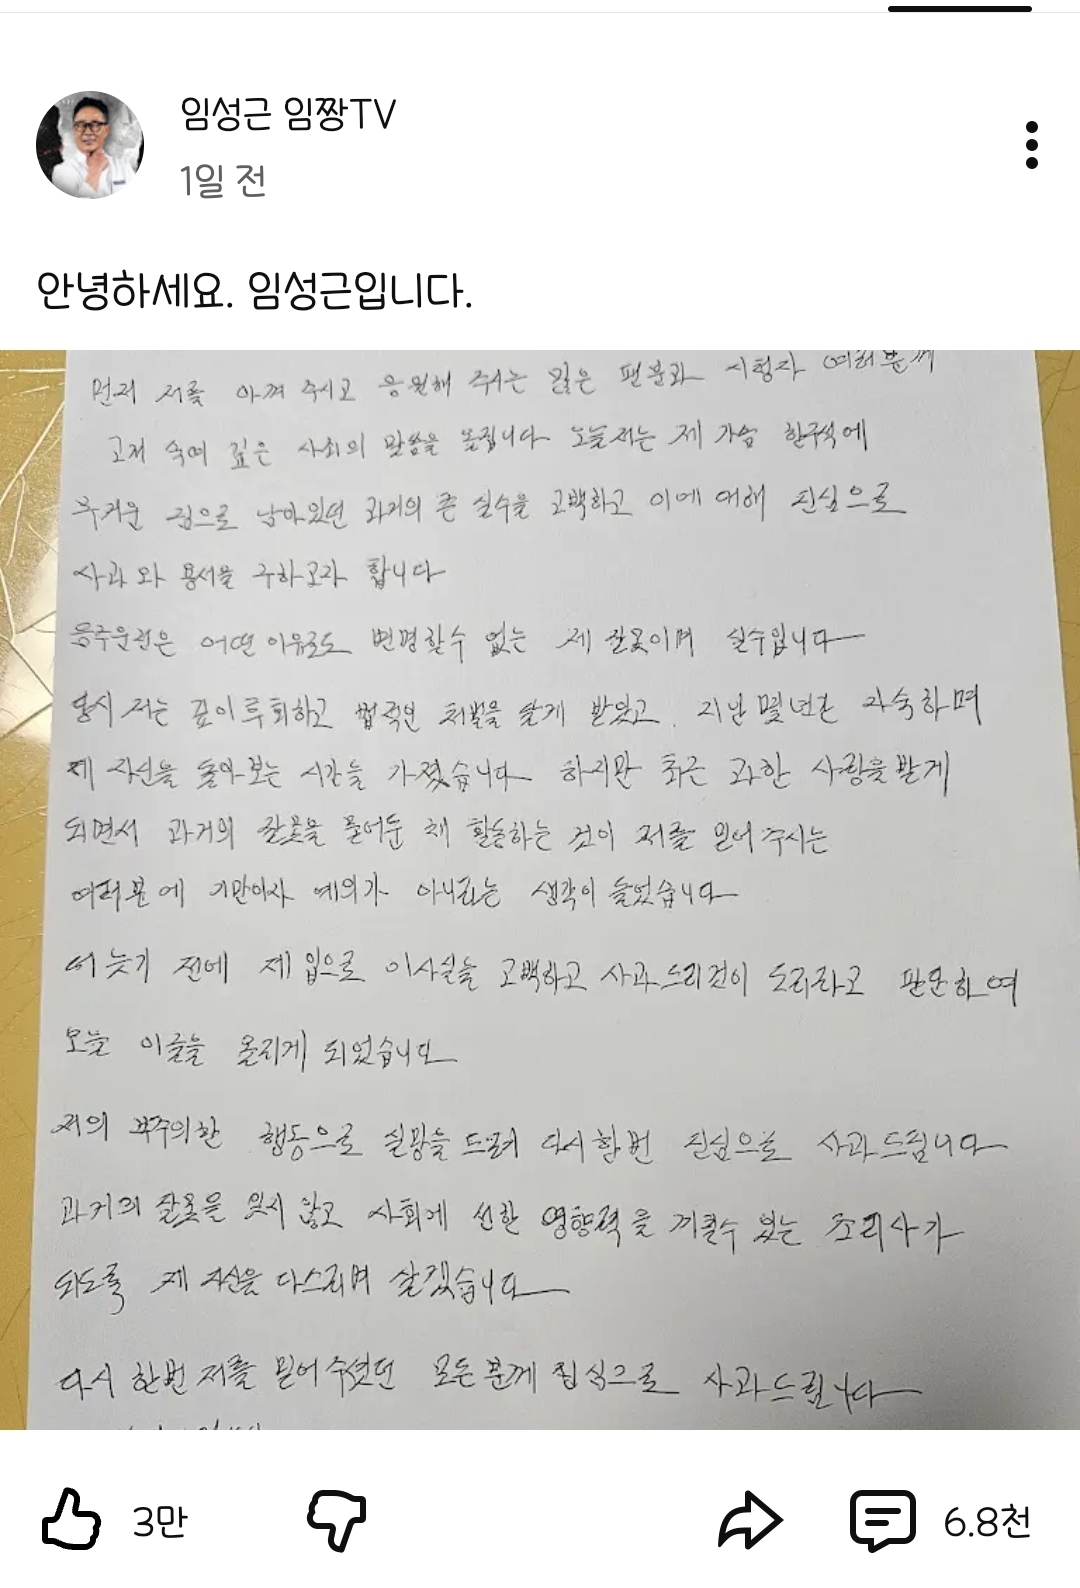 임성근 임짱TV
1일 전
안녕하세요. 임성근입니다.
먼저 저를 아껴 주시고 응원해 주시는 많은 팬분과 시청자 여러분께
고개 숙여 깊은 사죄의 말씀을 올립니다 오늘 저는 제 가슴 한구석에
무거운 짐으로 남아있던 과거의 큰 실수을 고백하고 이에 대해 진심으로
사과와 용서을 구하고자 합니다
음주운전은 어떤 이유로도 변명할수 없는 제 잘못이며 실수입니다
당시 저는 깊이 후회하고 법적인 처벌을 달게 받았고. 지난 몇 년간 자숙하며
제 자신을 돌아보는 시간을 가졌습니다 하지만 최근 과한 사랑을 받게
되면서 과거의 잘못을 묻어둔 채 활동하는 것이 저를 믿어 주시는
여러분에 기만이자 예의가 아니라는 생각이 들었습니다
더 늦기 전에 제 입으로 이사실을 고백하고 사과드리것이 도리라고 판단하여
오늘 이글을 올리게 되었습니다
저의 부주의한 행동으로 실망을 드려 다시한번 진심으로 사과드립니다
과거의 잘못을 잊지 않고 사회에 선한 영향력을 끼칠수 있는 조리사가
되도록 제 자신을 다스리며 살겠습니다
다시 한번 저를 믿어 주셨던 모든 분께 진심으로 사과드립니다
3만
6.8천